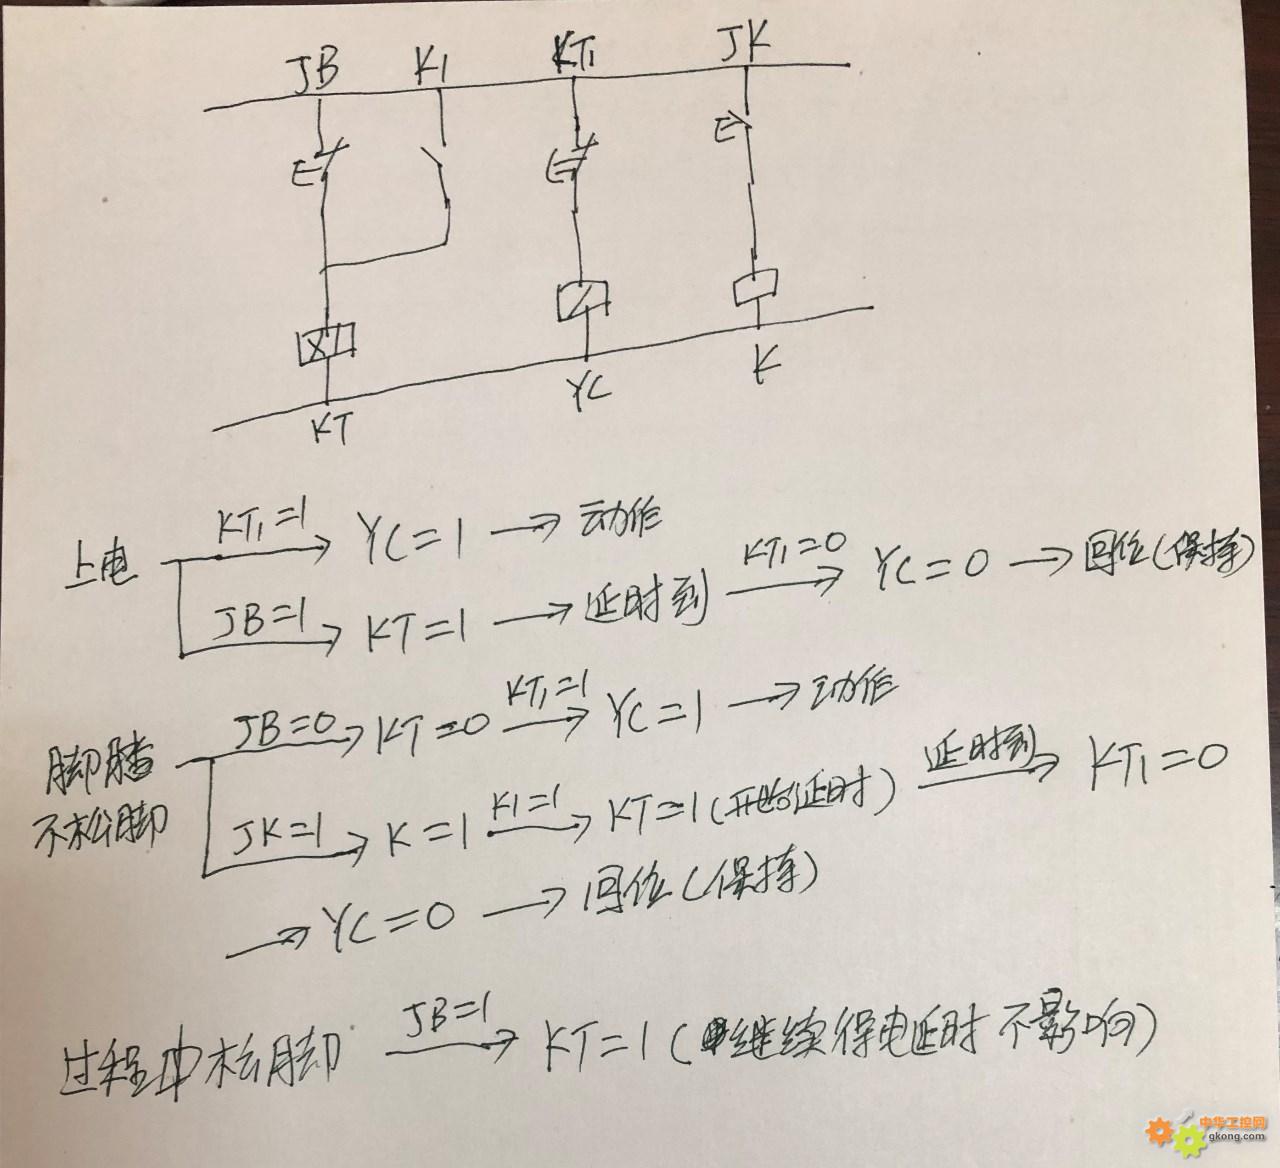 JB K1 KT1 JK
KT YC K
上电 KT1=1 → YC=1 → 动作
JB=1 → KT=1 → 延时到 KT1=0 → YC=0 → 回位(保持)
脚踏 JB=0 → KT=0 KT1=1 → YC=1 → 动作
不松脚 JK=1 → K=1 K1=1 → KT=1(开始延时) 延时到 → KT1=0
→ YC=0 → 回位(保持)
过程中松脚 JB=1 → KT=1(继续得电延时不影响)
中华工控网
gkong.com